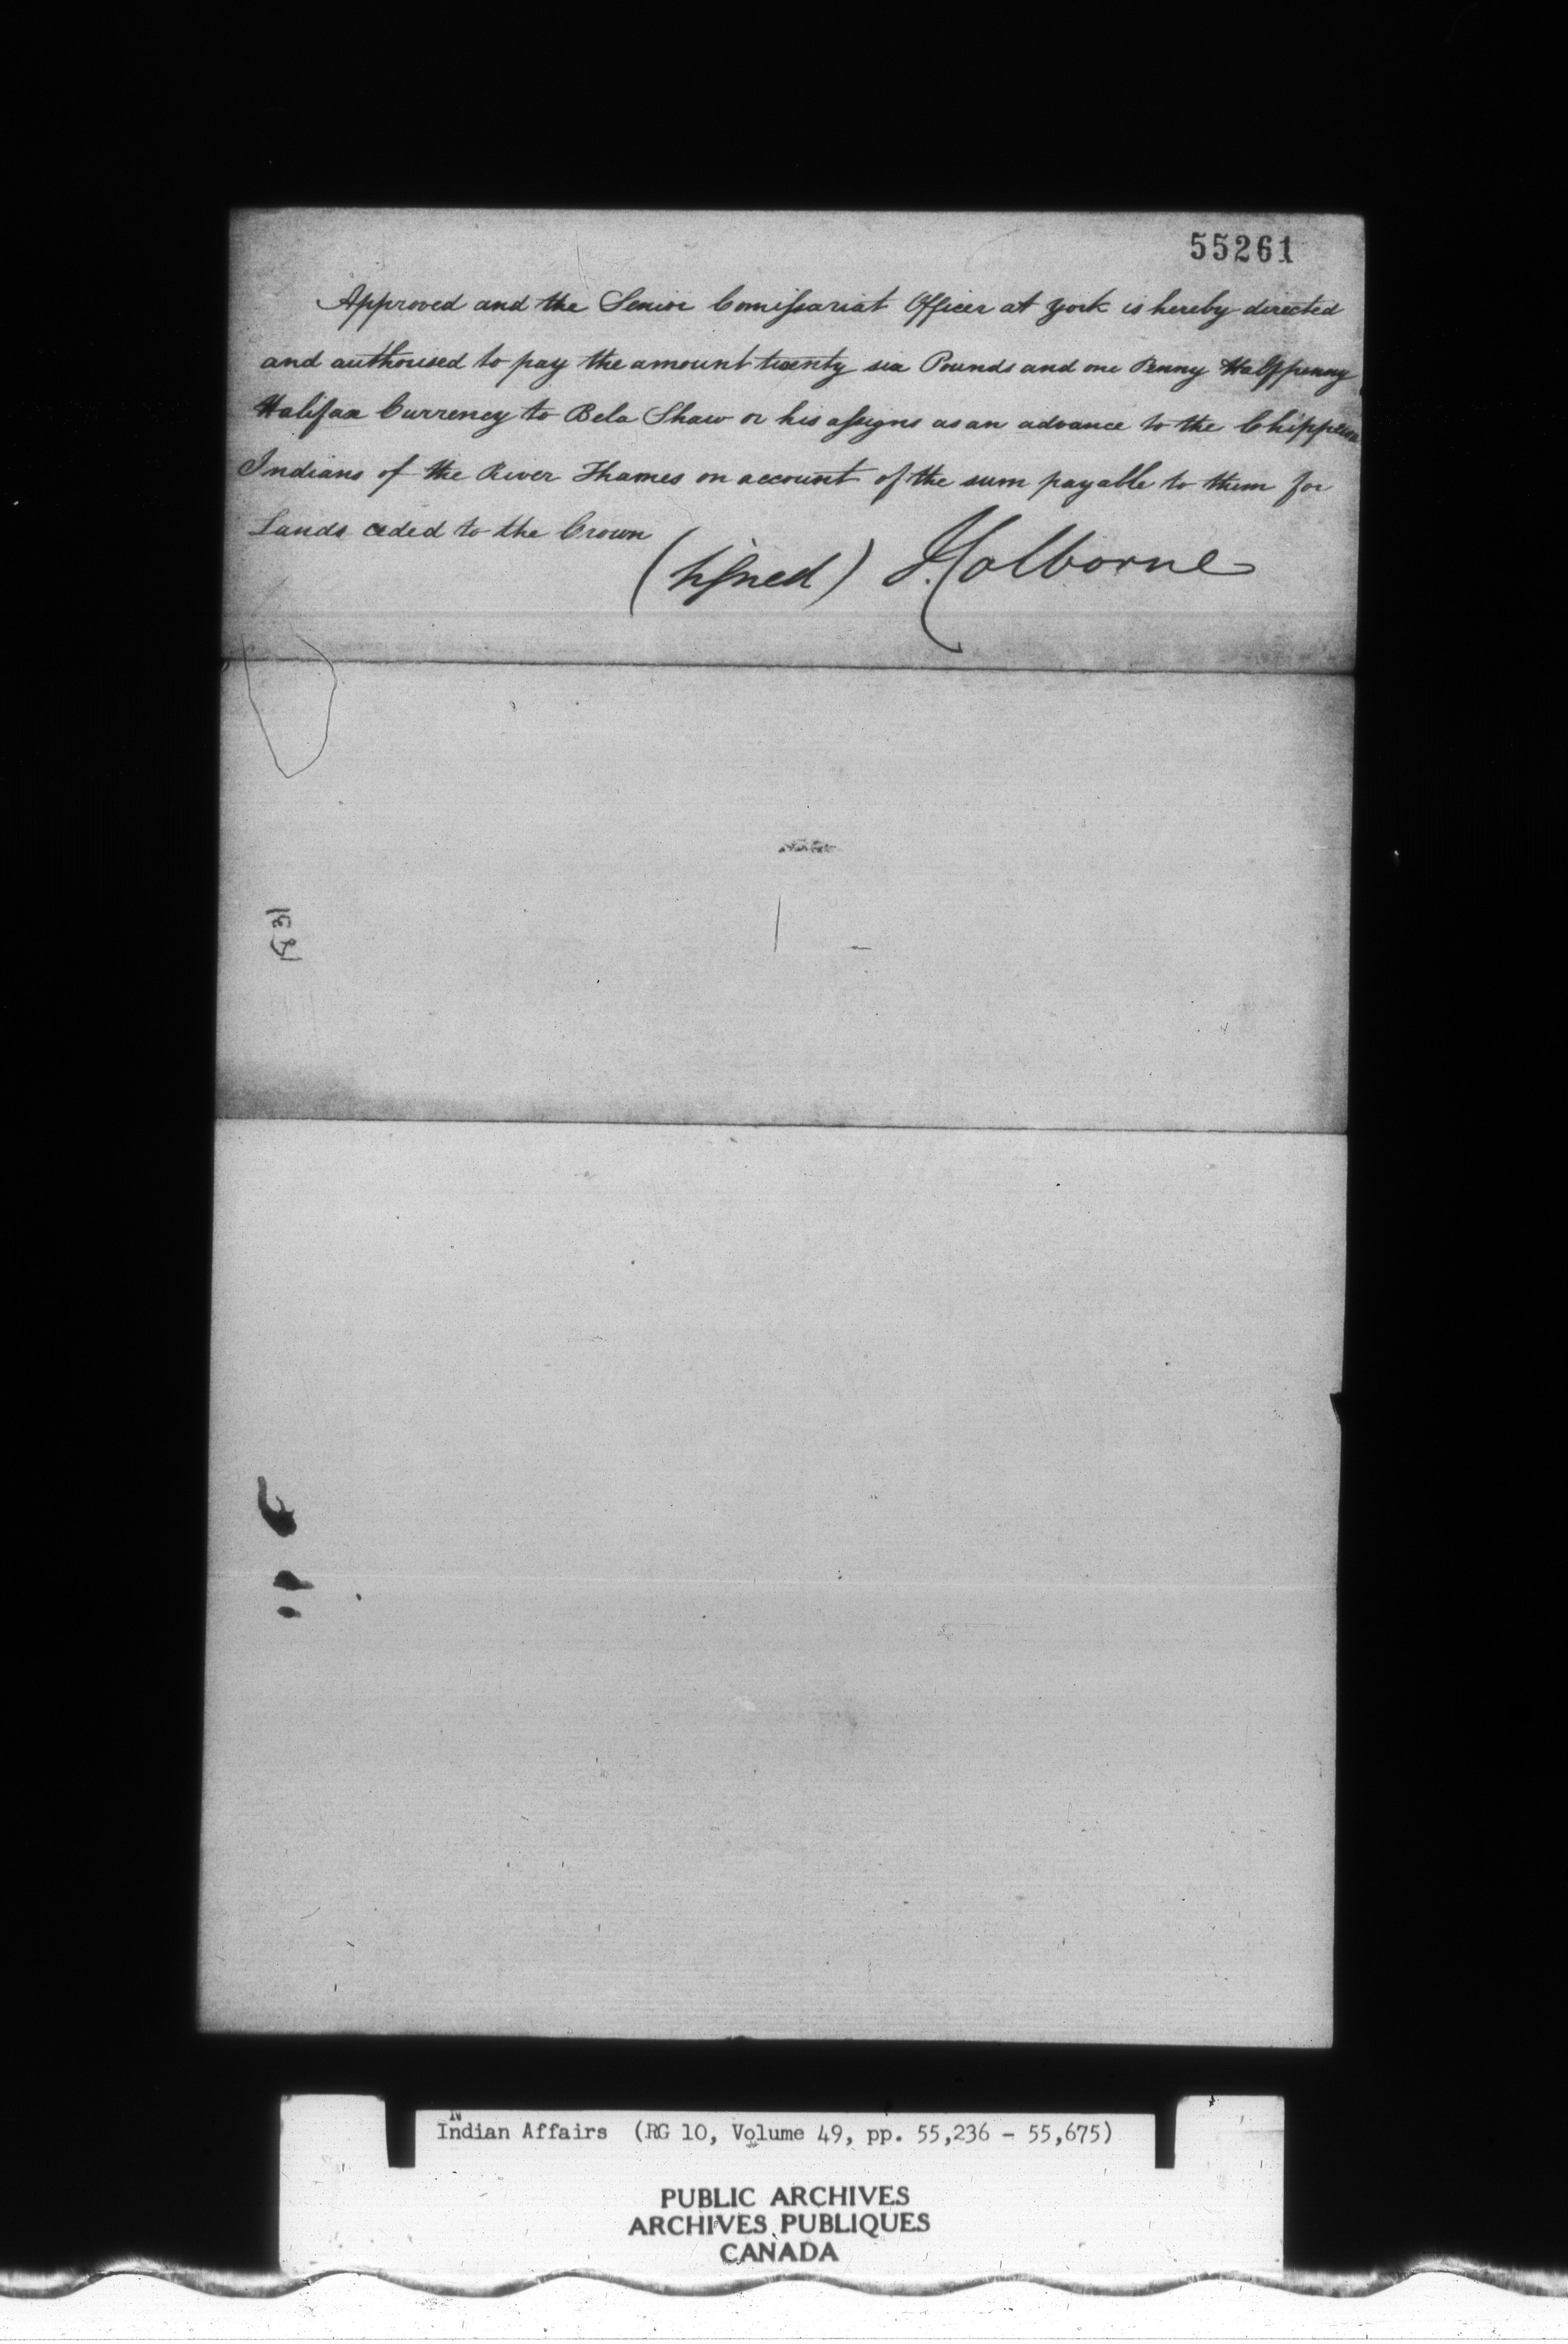 55261
Approved and the Senior Comissariat Officer at York is hereby directed
and authorised to pay the amount twenty six Pounds and one Penny Halfpenny
Halifax Currency to Bela Shaw or his assigns as an advance to the Chippewa
Indians of the River Thames on account of the sum payable to them for
Lands ceded to the Crown
(signed) J. Colborne
1831
Indian Affairs (RG 10, Volume 49, pp. 55,236 - 55,675)
PUBLIC ARCHIVES
ARCHIVES PUBLIQUES
CANADA